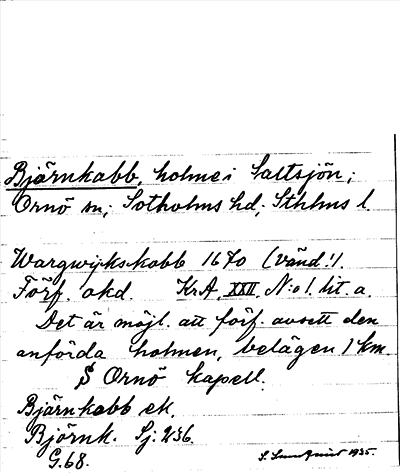 Björnkobb, holme i Saltsjön;
Ornö sn; Sotholms hd; Sthlms l.
Wargwijkskobb 1670 (vänd!).
Förf. okd. KrA, XXII, N:o 1. lit. a.
Det är möjl. att förf. avsett den
anförda holmen, belägen 1 km.
S Ornö kapell.
Björnkobb ek.
Björnk. Sj: 236.
G.68.
S. 1935.